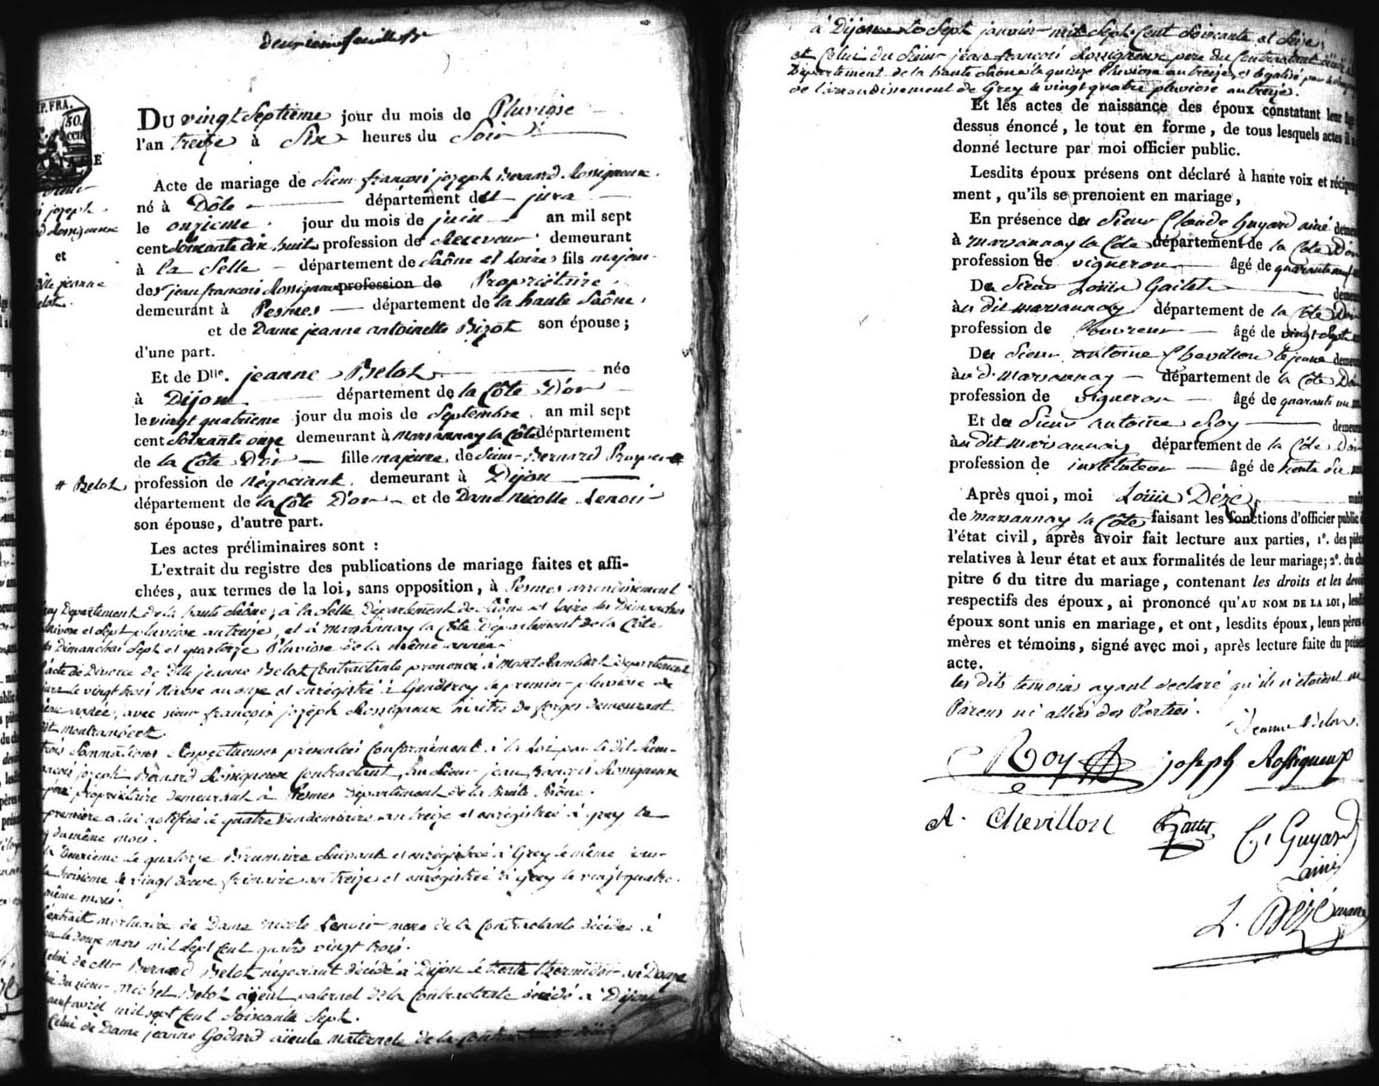 deuxieme feuillet
REP. FRA.
50
cen
DU vingt Septieme jour du mois de Pluviose
l'an treize à Six heures du Soir
Acte de mariage de Sieur françois joseph Bernard Rossigneux
né à Dôle département du jura
le onzieme jour du mois de juin an mil sept
cent soixante dix huit profession de Receveur demeurant
à la Selle département de Saône et Loire fils majeur
de jean françois Rossigneux profession de Propriétaire
demeurant à Pesmes département de la haute Saône
et de Dame jeanne antoinette Bizot son épouse;
d'une part.
joseph
Rossigneux
et
Dlle jeanne
Belot
Et de Dlle. jeanne Belot née
à Dijon département de la Côte D'or
le vingt quatrieme jour du mois de Septembre an mil sept
cent soixante onze demeurant à marsannay la Côte département
de la Côte D'or fille majeure de Sieur Bernard #
# Belot profession de négociant demeurant à Dijon
département de la Côte D'or et de Dame nicolle Lenoir
son épouse, d'autre part.
Les actes préliminaires sont :
L'extrait du registre des publications de mariage faites et affi-
chées, aux termes de la loi, sans opposition, à Pesmes arrondissement
Département de la haute Saône, à la Selle Département de Saône et Loire les Dimanches
nivose et Sept pluviose an treize, et à marsannay la Côte Département de la Côte
Dimanches Sept et quatorze Pluviose de la même année
L'acte de divorce de Dlle jeanne Belot Contractante prononcé à Montrambert Département
le vingt trois nivose an onze et enregistré à Gendrey le premier pluviose
année, avec sieur françois joseph Rossigneux maitre de forges demeurant
trois Sommations Respectueuses présentées Conformément à la Loi par le dit Sieur
françois joseph Bernard Rossigneux Contractant, au Sieur jean françois Rossigneux
père propriétaire demeurant à Pesmes Département de la haute Saône.
premiere a lui notifiée le quatre Vendemiaire an treize et enregistrée à Grey le
du même mois.
la deuxieme le quatorze Brumaire Suivant et enregistrée à Grey le même jour
la troisieme le vingt deux frimaire an treize et enregistrée à Grey le vingt quatre
même mois.
L'extrait mortuaire de Dame nicole Lenoir mere de la Contractante décédée à
le douze mars mil Sept Cent quatre vingt trois.
celui de Mr Bernard Belot négociant décédé à Dijon le trente thermidor an Douze
du sieur michel Belot ayeul paternel de la Contractante décédé à Dijon
avril mil sept Cent Soixante Sept.
Celui de Dame jeanne Godard aïeule maternelle de la Contractante décédée
à Dijon le Sept janvier mil Sept Cent Soixante et Seize,
et Celui du Sieur jean françois Rossigneux pere du Contractant
Département de la haute Saône le quinze Pluviose an treize, et légalisé par le
de l'arrondissement de Grey le vingt quatre pluviose an treize.
Et les actes de naissance des époux constatant leur
dessus énoncé, le tout en forme, de tous lesquels actes il a
donné lecture par moi officier public.
Lesdits époux présens ont déclaré à haute voix et récipro
ment, qu'ils se prenoient en mariage,
En présence du Sieur Claude Guyard ainé deme
à marsannay la Côte département de la Côte D'or
profession de vigneron âgé de quarante
Du Sieur Louis Gallet deme
au dit marsannay département de la Côte D'or
profession de Couvreur âgé de vingt Sept
Du Sieur antoine Chevillon le jeune demeu
au dt marsannay département de la Côte D'or
profession de vigneron âgé de quarante
Et du Sieur antoine Roy deme
au dit marsannay département de la Côte D'or
profession de instituteur âgé de trente
Après quoi, moi Louis Dézé mai
de marsannay la Côte faisant les fonctions d'officier public
l'état civil, après avoir fait lecture aux parties, 1º. des piè
relatives à leur état et aux formalités de leur mariage; 2º. du cha
pitre 6 du titre du mariage, contenant les droits et les devoi
respectifs des époux, ai prononcé qu'AU NOM DE LA LOI, lesdi
époux sont unis en mariage, et ont, lesdits époux, leurs pères
mères et témoins, signé avec moi, après lecture faite du prése
acte.
les dits temoins ayant declaré qu'ils n'étoient ni
Parens ni alliés des Parties.
Jeanne Belot
Roy joseph Rossigneux
A. Chevillon Gallet C. Guyard
ainé
L. Dézé maire